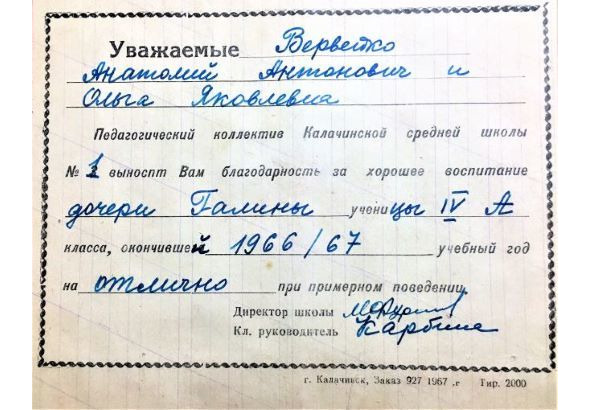 Уважаемые Вервейко
Анатолий Антонович и
Ольга Яковлевна
Педагогический коллектив Калачинской средней школы
№ 1 выносит Вам благодарность за хорошее воспитание
дочери Галины ученицы IV А
класса, окончившей 1966/67 учебный год
на отлично при примерном поведении
Директор школы
Кл. руководитель
г. Калачинск, Заказ 927 1967 .г Тир. 2000